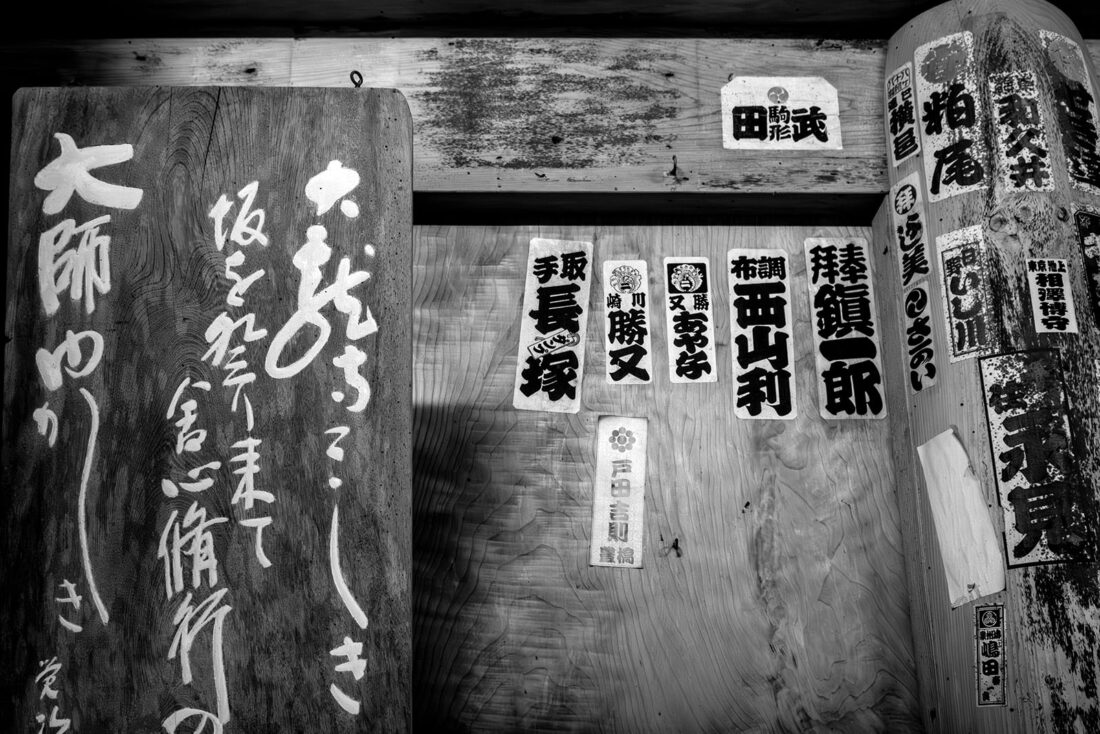 大龍寺しき
坂を登り来て
舎心修行の
大師ゆかしき
武
駒形
田
奉拝
鎮一郎
調布
西山利
勝又
あや子
川崎
勝又
取手
長塚
戸田吉則
豊橋
粕尾
和久井
池上
横冨
汐美
きのい
いし川
東京池上
相澤博守
永見
嶋田